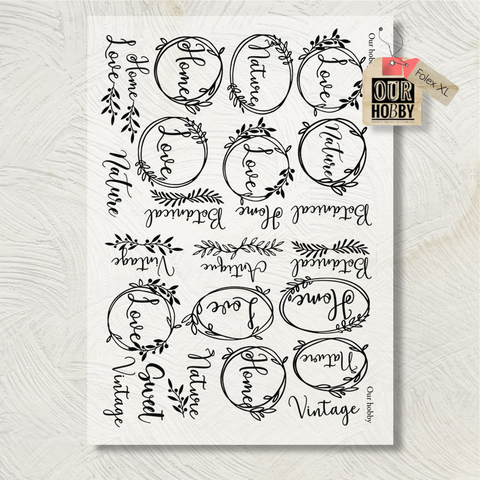 Our hobby
Folex XL
OUR
HOBBY
Home
Love
Home
Nature
Love
Nature
Love
Love
Nature
Botanical
Home
Botanical
Vintage
Antique
Botanical
Love
Love
Home
Vintage
Sweet
Nature
Home
Nature
Our hobby
Vintage